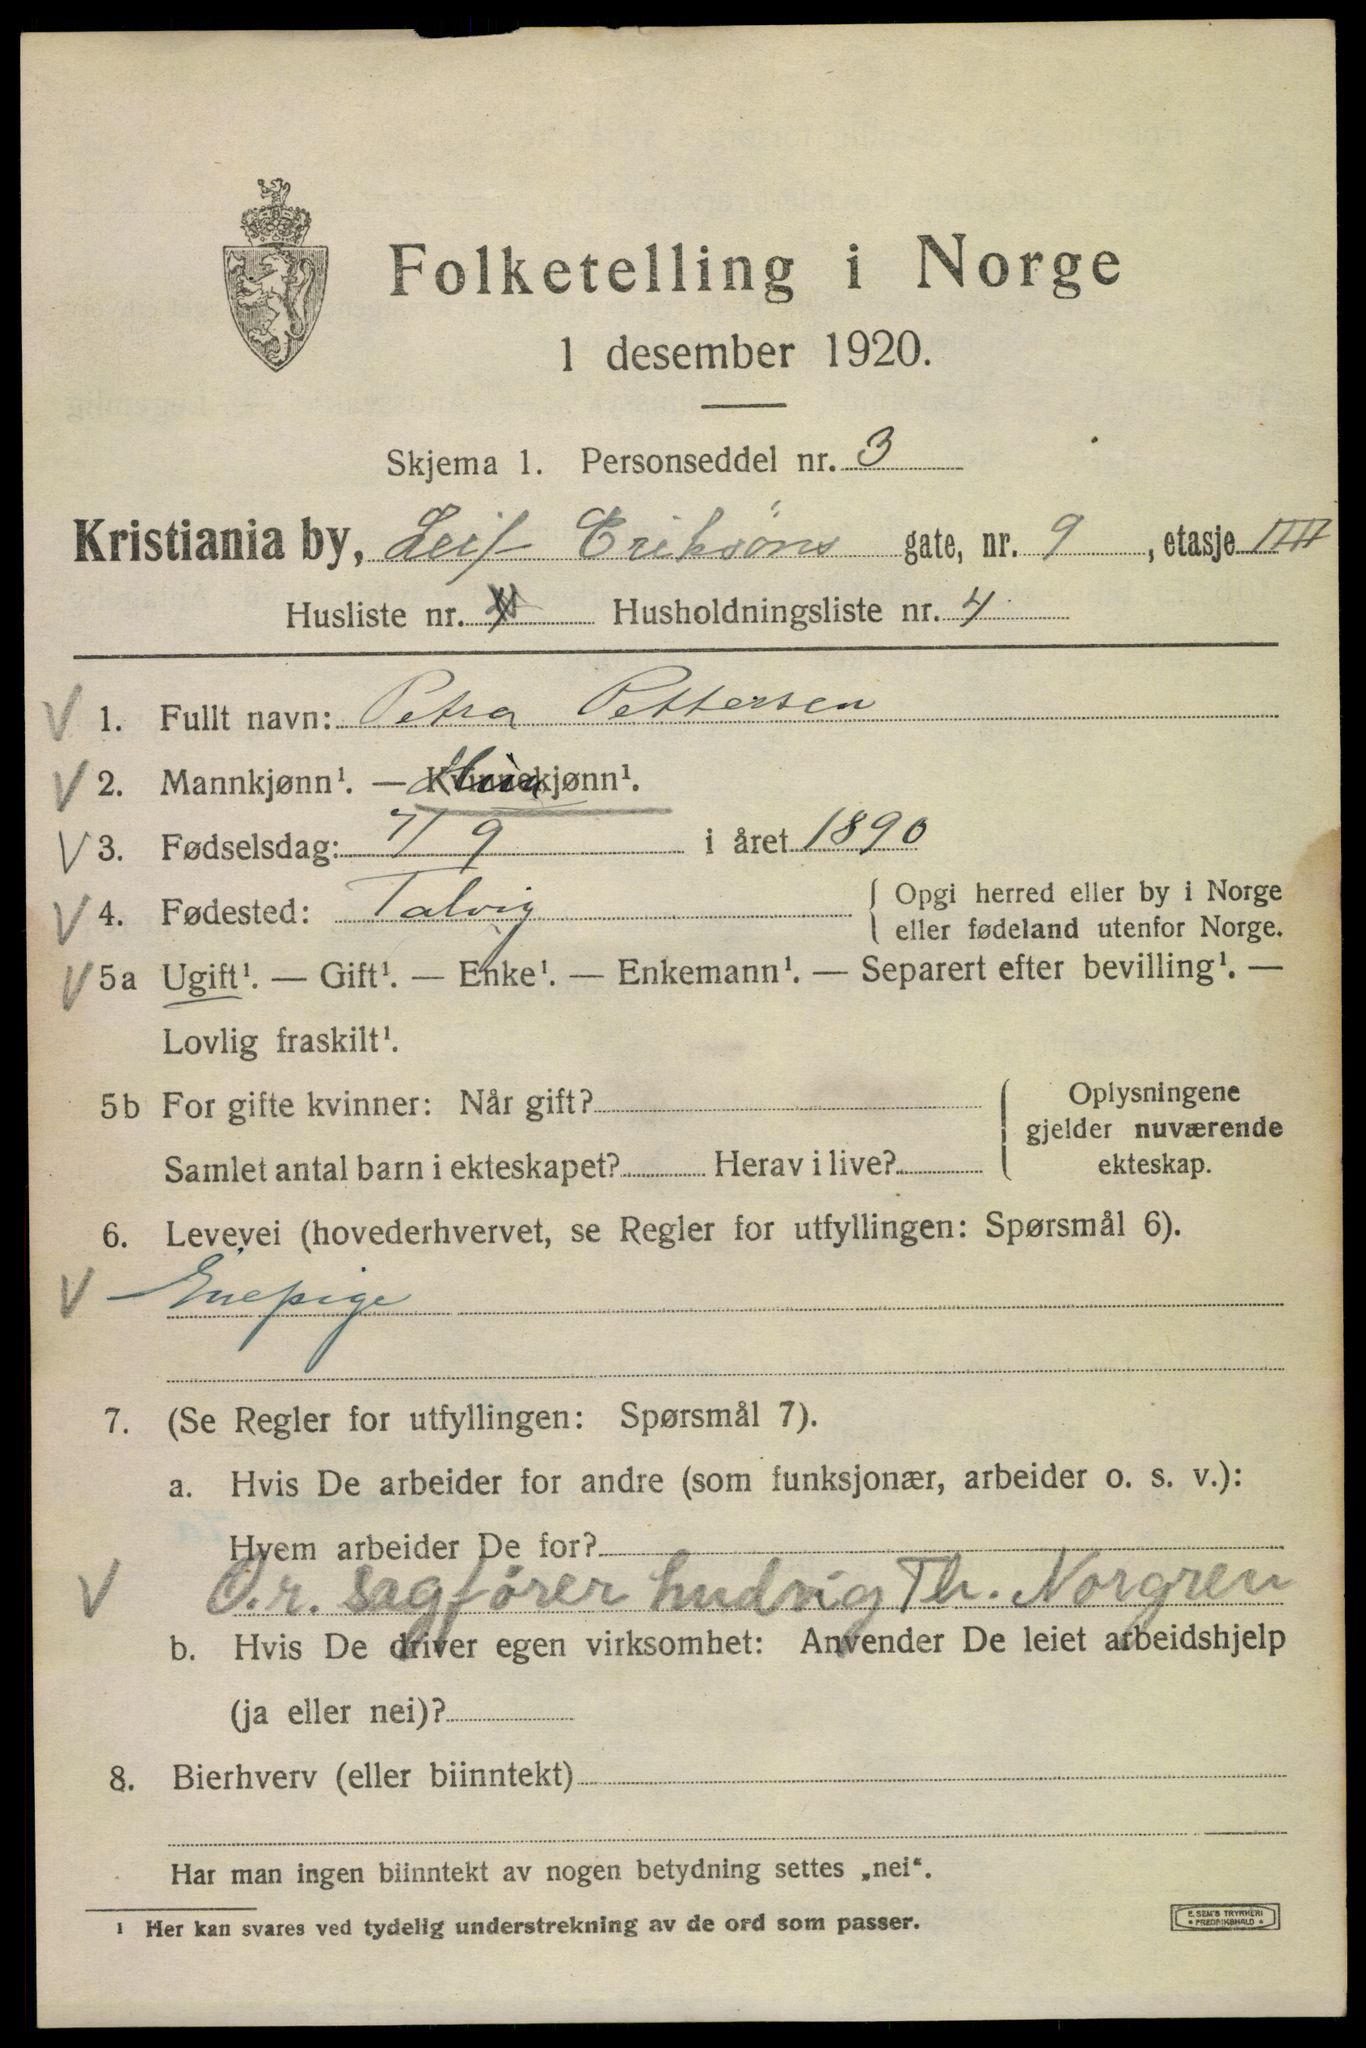 Folketelling i Norge
1 desember 1920.
Skjema 1. Personseddel nr. 3
Kristiania by, Leif Eriksøns gate, nr. 9, etasje III
Husliste nr. Husholdningsliste nr. 4
V 1. Fullt navn: Petra Pettersen
V 2. Mannkjønn¹. — Kvinnekjønn¹.
V 3. Fødselsdag: 7/9 i året 1890
V 4. Fødested: Talvig { Opgi herred eller by i Norge
eller fødeland utenfor Norge.
V 5a Ugift¹. — Gift¹. — Enke¹. — Enkemann¹. — Separert efter bevilling¹. —
Lovlig fraskilt¹.
5b For gifte kvinner: Når gift? { Oplysningene
gjelder nuværende
Samlet antal barn i ekteskapet? Herav i live? ekteskap.
6. Levevei (hovederhvervet, se Regler for utfyllingen: Spørsmål 6).
V Enepige
7. (Se Regler for utfyllingen: Spørsmål 7).
a. Hvis De arbeider for andre (som funksjonær, arbeider o. s. v.):
Hvem arbeider De for?
V O.r. sagfører Ludvig Th. Norgren
b. Hvis De driver egen virksomhet: Anvender De leiet arbeidshjelp
(ja eller nei)?
8. Bierhverv (eller biinntekt)
Har man ingen biinntekt av nogen betydning settes „nei“.
¹ Her kan svares ved tydelig understrekning av de ord som passer.
E. SEM'S TRYKKERI
• FREDRIKSHALD •